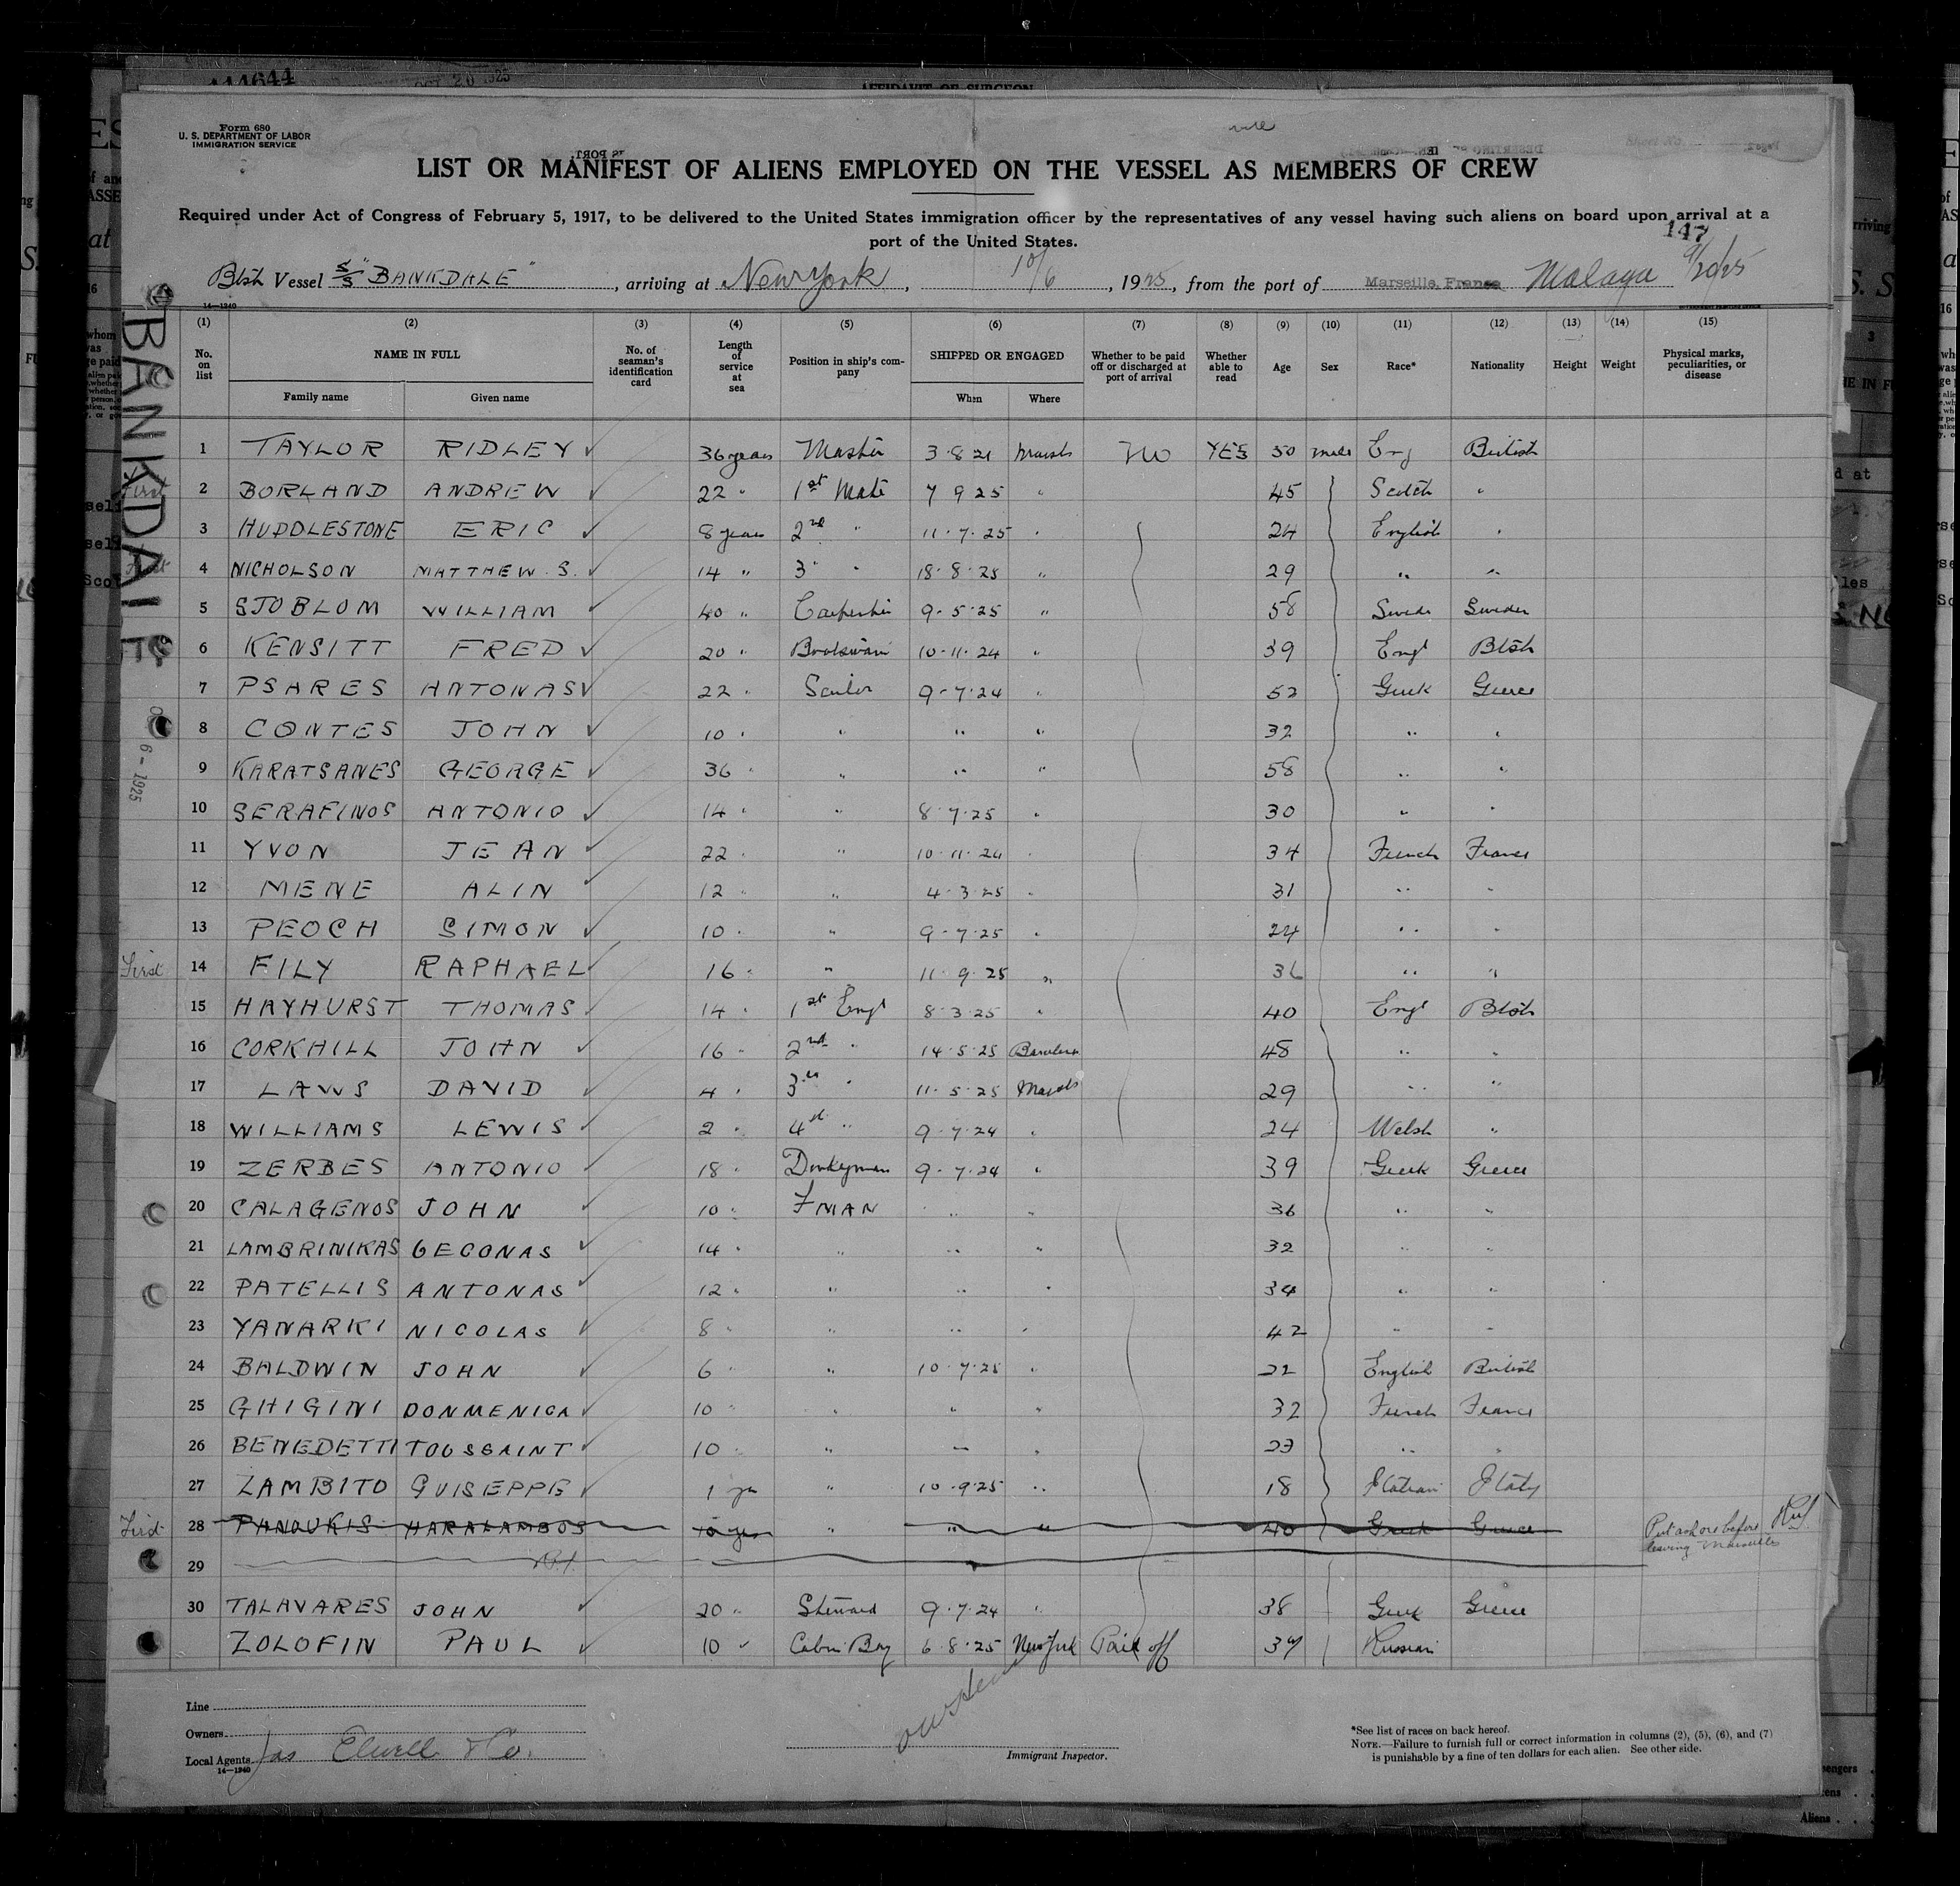 144644 OCT 20 1925
AFFIDAVIT OF SURGEON
Form 680
U. S. DEPARTMENT OF LABOR
IMMIGRATION SERVICE
LIST OR MANIFEST OF ALIENS EMPLOYED ON THE VESSEL AS MEMBERS OF CREW
Required under Act of Congress of February 5, 1917, to be delivered to the United States immigration officer by the representatives of any vessel having such aliens on board upon arrival at a
port of the United States.
147
Btsh Vessel S/S "BANKDALE", arriving at New York, 10/6, 1925, from the port of Marseille, France Malaga 9/20/25
14—1240
BANKDALE
6 - 1925
(1) (2) (3) (4) (5) (6) (7) (8) (9) (10) (11) (12) (13) (14) (15)
No. on list NAME IN FULL No. of seaman's identification card Length of service at sea Position in ship's company SHIPPED OR ENGAGED Whether to be paid off or discharged at port of arrival Whether able to read Age Sex Race* Nationality Height Weight Physical marks, peculiarities, or disease
Family name Given name When Where
1 TAYLOR RIDLEY ✓ 36 years Master 3·8·21 Marsls No YES 50 male Eng British
First 2 BORLAND ANDREW ✓ 22 " 1st Mate 7 9 25 " 45 Scotch "
3 HUDDLESTONE ERIC ✓ 8 years 2nd " 11·7·25 " 24 English "
First 4 NICHOLSON MATTHEW S. ✓ 14 " 3 " 18·8·25 " 29 " "
5 SJOBLOM WILLIAM ✓ 40 " Carpenter 9·5·25 " 58 Swede Sweden
6 KENSITT FRED ✓ 20 " Boatswain 10·11·24 " 39 Engl Btsh
7 PSARES ANTONAS ✓ 22 " Sailor 9·7·24 " 52 Greek Greece
8 CONTES JOHN ✓ 10 " " " " 32 " "
9 KARATSANES GEORGE ✓ 36 " " " " 58 " "
10 SERAFINOS ANTONIO ✓ 14 " " 8·7·25 " 30 " "
11 YVON JEAN ✓ 22 " " 10·11·24 " 34 French France
12 MENE ALIN ✓ 12 " " 4·3·25 " 31 " "
13 PEOCH SIMON ✓ 10 " " 9·7·25 " 24 " "
First 14 FILY RAPHAEL ✓ 16 " " 11·9·25 " 36 " "
15 HAYHURST THOMAS ✓ 14 " 1st Engr 8·3·25 " 40 Engl Btsh
16 CORKHILL JOHN ✓ 16 " 2nd " 14·5·25 48 " "
17 LAWS DAVID ✓ 4 " 3rd " 11·5·25 Marsls 29 " "
18 WILLIAMS LEWIS ✓ 2 " 4th " 9·7·24 " 24 Welsh "
19 ZERBES ANTONIO ✓ 18 " Donkeyman 9·7·24 " 39 Greek Greece
20 CALAGENOS JOHN ✓ 10 " FMAN " " 36 " "
21 LAMBRINIKAS GECONAS ✓ 14 " " " " 32 " "
22 PATELLIS ANTONAS ✓ 12 " " " " 34 " "
23 YANARKI NICOLAS ✓ 8 " " " " 42 " "
24 BALDWIN JOHN ✓ 6 " " 10·7·25 " 22 English British
25 GHIGINI DONMENICA ✓ 10 " " " " 32 French France
26 BENEDETTI TOUSSAINT ✓ 10 " " " " 23 " "
27 ZAMBITO GUISEPPE ✓ 1 yr " 10·9·25 " 18 Italian Italy
First 28 PANOUKIS HARALAMBOS 10 yrs " " " 40 Greek Greece Put ashore before leaving Marseilles
29
30 TALAVARES JOHN ✓ 20 " Steward 9·7·24 " 38 Greek Greece
ZOLOFIN PAUL ✓ 10 ✓ Cabin Boy 6·8·25 New York Paid off 34 Russian
Line
Owners
Local Agents Jas Elwell & Co.
14—1240
Immigrant Inspector.
*See list of races on back hereof.
NOTE.—Failure to furnish full or correct information in columns (2), (5), (6), and (7)
is punishable by a fine of ten dollars for each alien. See other side.
Aliens